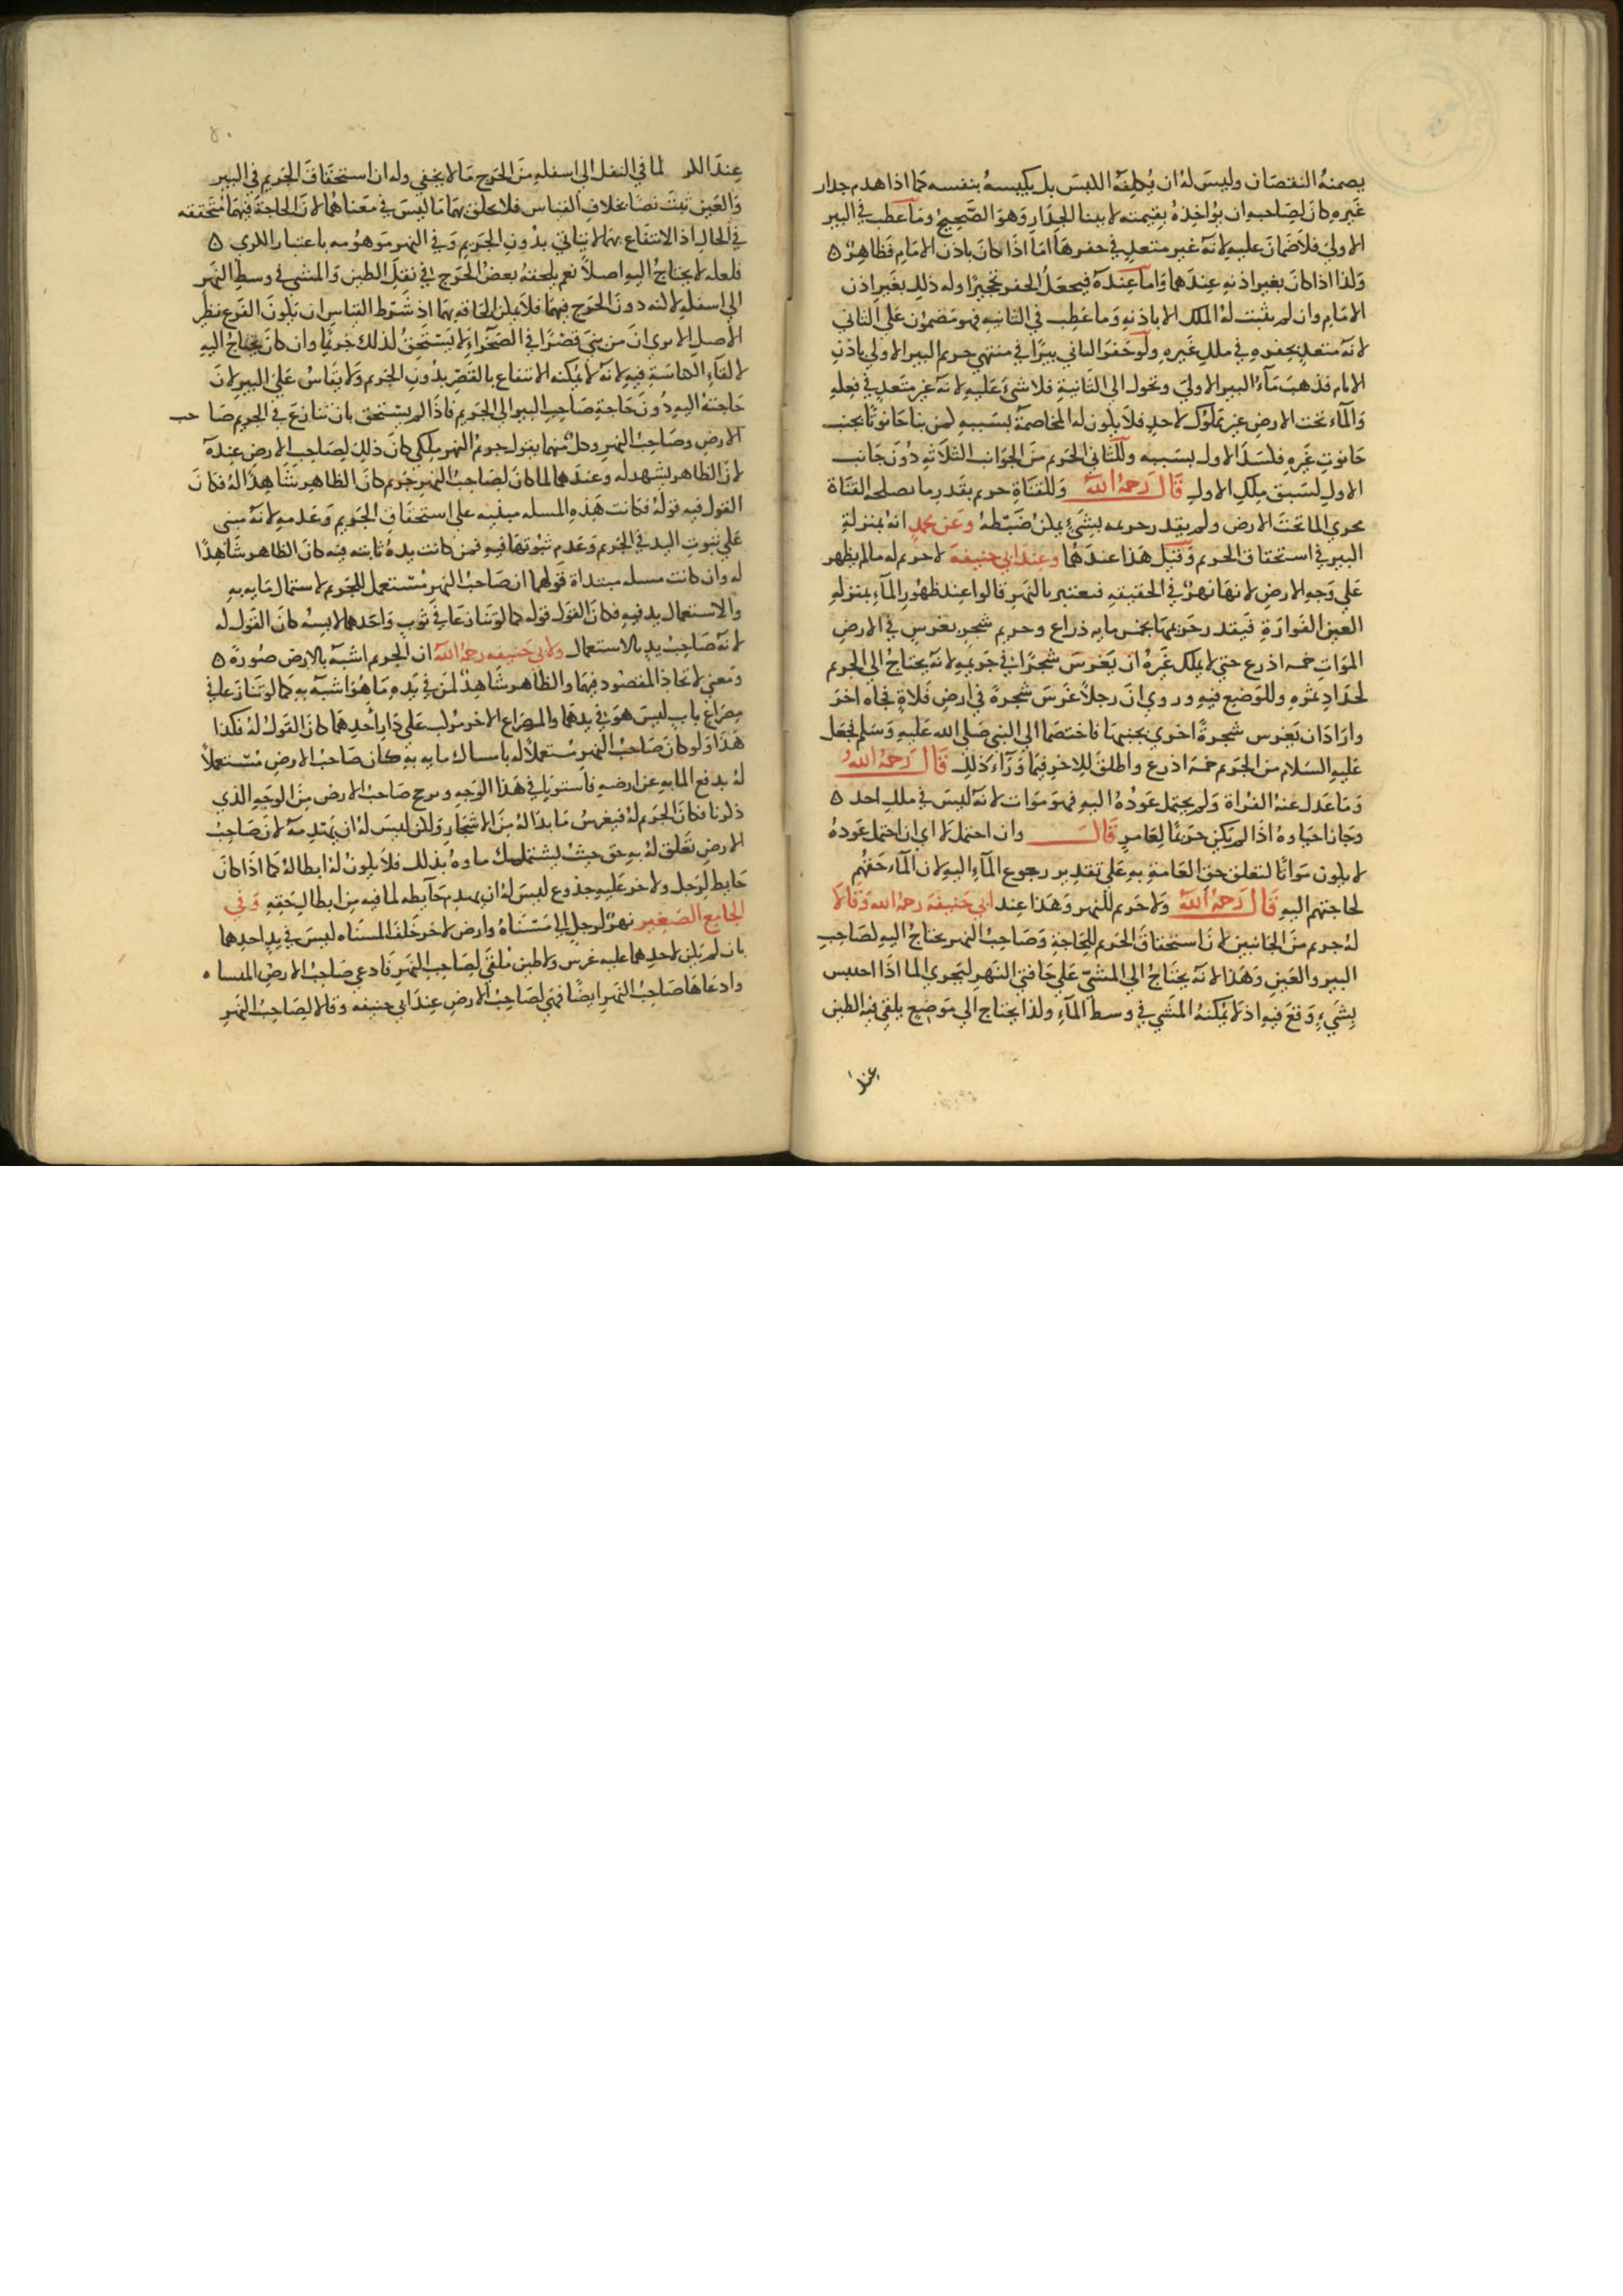 يضمنه النقصان وليس له ان يكلفه الكبس بل يكبسه بنفسه كما اذا هدم جدار
غيره كان لصاحبه ان يؤاخذه بقيمته لا ببنا الجدار وهو الصحيح وما عطب في البير
الاولى فلا ضمان عليه لانه غير متعد في حفرها اما اذا كان باذن الامام فظاهر ٥
وكذا اذا كان بغير اذنه عندهما واما عنده فيجعل الحفر تحجيرا وله ذلك بغير اذن
الامام وان لم يثبت له الملك الا باذنه وما عطب في الثانيه فهو مضمون على الثاني
لانه متعد بحفره في ملك غيره ولو حفر الثاني بيرا في منتهى حريم البير الاولى باذن
الامام فذهب مآء البير الاولى وتحول الى الثانية فلا شئ عليه لانه غير متعد في فعله
والمآء تحت الارض غير مملوك لاحد فلا يكون له المخاصمة بسببه كمن بنا حانوتا بجنب
حانوت غيره فكسد الاول بسببه وللثاني الحريم من الجوانب الثلاثه دون جانب
الاول لسبق ملك الاول قال رحمه الله وللقناة حريم بقدر ما يصلحه القناة
مجرى الما تحت الارض ولم يقدر حريمه بشئ يمكن ضبطه وعن محمد انه بمنزلة
البير في استحقاق الحريم وقيل هذا عندهما وعند ابي حنيفة لا حريم له ما لم يظهر
على وجه الارض لانها نهر في الحقيقه فيعتبر بالنهر قالوا عند ظهور المآء بمنزله
العين الفوارة فيقدر حريمها بخمس مايه ذراع وحريم شجر يغرس في الارض
الموات خمسه اذرع حتى لا يملك غيره ان يغرس شجرا في حريمه لانه يحتاج الى الحريم
لجداد ثمره وللوضع فيه وروي ان رجلا غرس شجرة في ارض فلاة فجاه اخر
واراد ان يغرس شجرة اخرى بجنبها فاختصما الى النبي صلى الله عليه وسلم فجعل
عليه السلام من الحريم خمسه اذرع واطلق للاخر فيما ورآء ذلك قال رحمه الله
وما عدل عنه الفراة ولم يحتمل عوده اليه فهو موات لانه ليس في ملك احد ٥
وجاز احياوه اذا لم يكن حريما لعامر قال وان احتمل لا اي ان احتمل عوده
لا يكون مواتا لتعلق حق العامة به على تقدير رجوع المآء اليه لان المآء حقهم
لحاجتهم اليه قال رحمه الله ولا حريم للنهر وهذا عند ابي حنيفة رحمه الله وقالا
له حريم من الجانبين لان استحقاق الحريم للحاجة وصاحب النهر يحتاج اليه لصاحب
البير والعين وهذا لانه يحتاج الى المشي على حافتي النهر ليجري الما اذا احتبس
بشيء وقع فيه اذ لا يمكنه المشي في وسط المآء ولذا يحتاج الى موضع يلقي فيه الطين
عند
عند الكر لما في النقل الى اسفله من الحرج ما لا يخفى وله ان استحقاق الحريم في البير
والعين ثبت نصا بخلاف القياس فلا يلحق بهما ما ليس في معناهما لان الحاجة فيهما متحققه
في الحال اذ الانتفاع بهما لا يتاتى بدون الحريم وفي النهر موهومه باعتبار الكري ٥
فلعله لا يحتاج اليه اصلا نعم يلحقه بعض الحرج في نقل الطين والمشي في وسط النهر
الى اسفله لكنه دون الحرج فيهما فلا يمكن الحاقه بهما اذ شرط القياس ان يكون الفرع نظير
الاصل الا يرى ان من بنى قصرا في الصحراء لا يستحق لذلك حريما وان كان يحتاج اليه
لالقاء الكناسة فيه لانه لا يمكنه الانتفاع بالقصر بدون الحريم ولا يقاس على البير لان
حاجته اليه دون حاجة صاحب البير الى الحريم فاذا لم يستحق بان تنازع في الحريم صا حب
الارض وصاحب النهر وكل منهما يقول حريم النهر ملكي كان ذلك لصاحب الارض عنده
لان الظاهر يشهد له وعندهما لما كان لصاحب النهر حريم كان الظاهر شاهدا له فكان
القول فيه قوله فكانت هذه المسله مبنيه على استحقاق الحريم وعدمه لانه مبنى
على ثبوت اليد في الحريم وعدم ثبوتها فيه فمن كانت يده ثابته فيه كان الظاهر شاهدا
له وان كانت مسله مبتداة قولهما ان صاحب النهر مستعمل للحريم لاستمال مايه به
والاستعمال يد فيه فكان القول قوله كما لو تنازعا في ثوب واحدهما لابسه كان القول له
لانه صاحب يد بالاستعمال ولابي حنيفه رحمه الله ان الحريم اشبه بالارض صورة ٥
ومعنى لاتحاد المقصود فيهما والظاهر شاهد لمن في يده ما هو اشبه به كما لو تنازعا في
مصراع باب ليس هو في يدهما والمصراع الاخر مركب على دار احدهما كان القول له فكذا
هذا ولو كان صاحب النهر مستعملا له بامساك مايه به كان صاحب الارض مستعملا
له بدفع الما به عن ارضه فاستويا في هذا الوجه ويرجح صاحب الارض من الوجه الذي
ذكرنا فكان الحريم له فيغرس ما بدا له من الاشجار ولكن ليس له ان يهدمه لان صاحب
الارض تعلق له به حق حيث يستمسك ماوه بذلك فلا يكون له ابطاله كما اذا كان
حايط لرجل ولاخر عليه جذوع ليس له ان يهدم حآيطه لما فيه من ابطال حقه وفي
الجامع الصغير نهر لرجل الى مسناة وارض لاخر خلف المسناه ليس في يد احدها
بان لم يكن لاحدهما عليه غرس ولا طين ملقى لصاحب النهر فادعى صاحب الارض المسناه
وادعاها صاحب النهر ايضا فهي لصاحب الارض عند ابي حنيفه وقالا لصاحب النهر